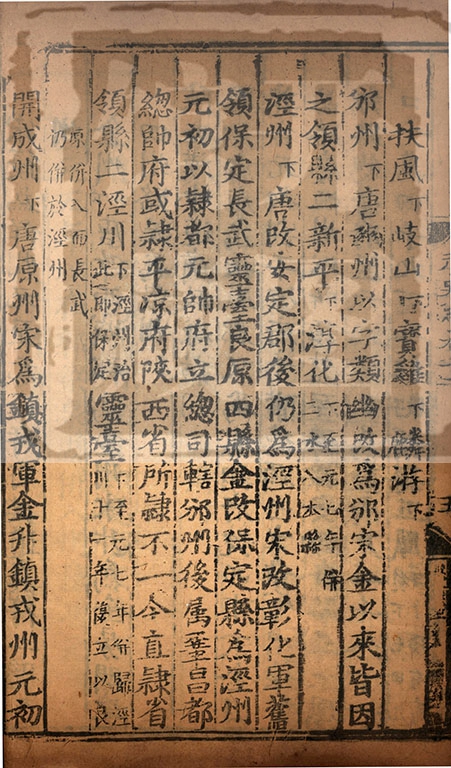 扶風下岐山下寶雞下麟游下
邠州下唐豳州以字類幽改爲邠宋金以來皆因
之領縣二新平下淳化下至元七年併三水入本縣
涇州下唐改安定郡後仍爲涇州宋改彰化軍舊
領保定長武靈臺良原四縣金改保定縣爲涇州
元初以隸都元帥府立總司轄邠州後属鞏昌都
總帥府或隸平凉府陝西省所隸不一今直隸省
領縣二涇川下涇州治此即保定靈臺下至元七年併歸涇川十一年復立以良
原併入而長武仍併於涇州
開成州下唐原州宋爲鎮戎軍金升鎮戎州元初